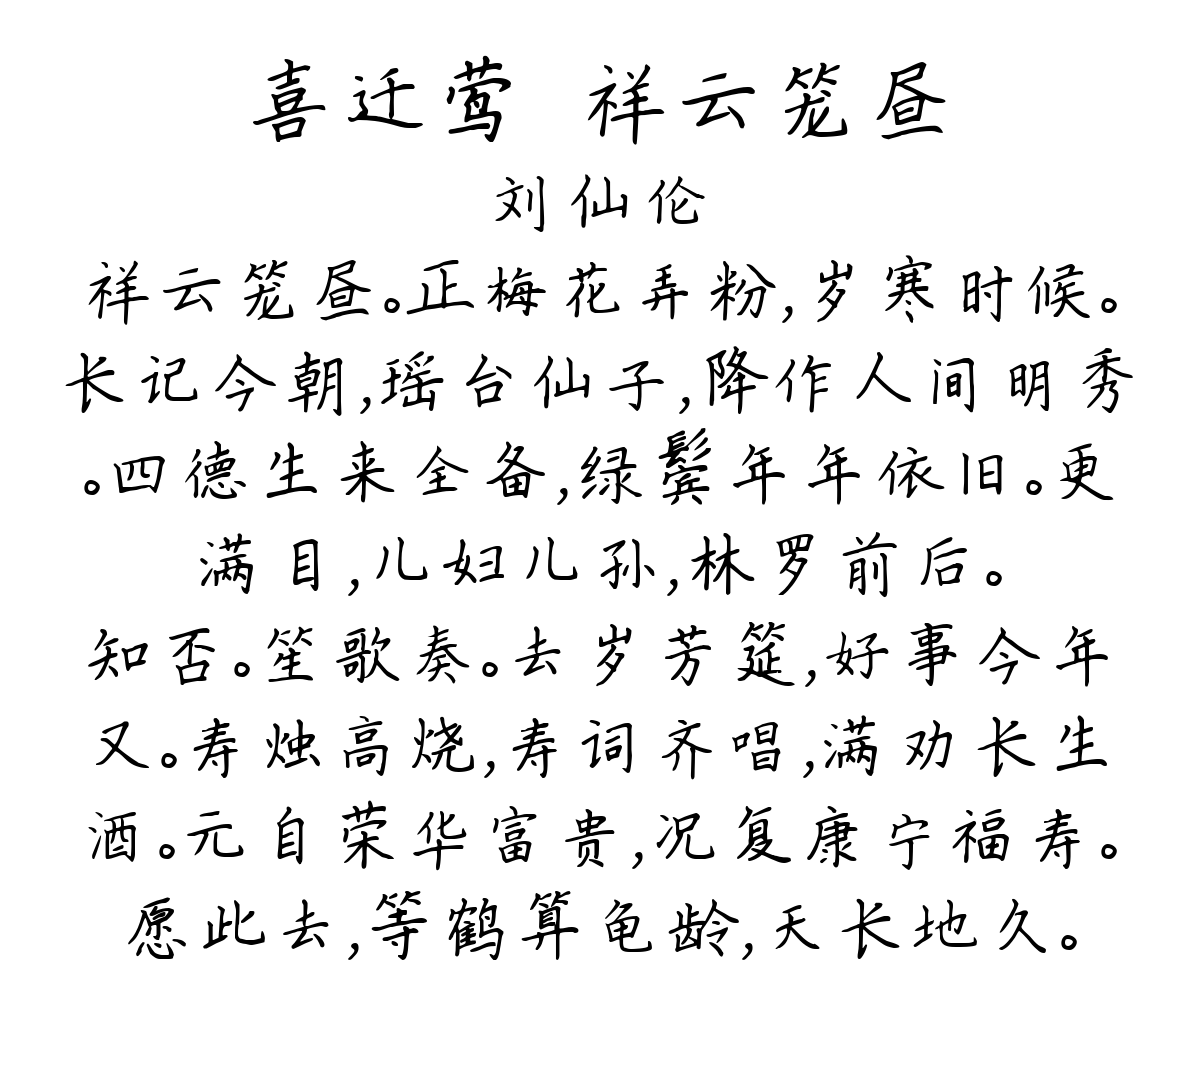 喜迁莺 祥云笼昼
刘仙伦
祥云笼昼。正梅花弄粉,岁寒时候。
长记今朝,瑶台仙子,降作人间明秀
。四德生来全备,绿鬓年年依旧。更
满目,儿妇儿孙,林罗前后。
知否。笙歌奏。去岁芳筵,好事今年
又。寿烛高烧,寿词齐唱,满劝长生
酒。元自荣华富贵,况复康宁福寿。
愿此去,等鹤算龟龄,天长地久。